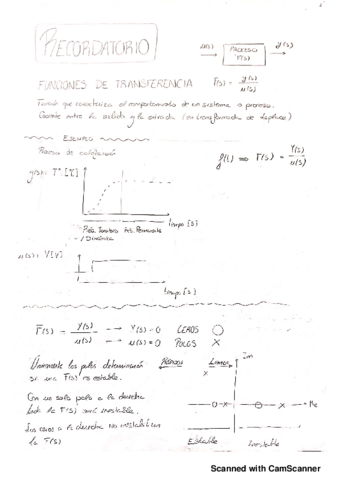 RECORDATORIO
u(s) PROCESO F(s) y(s)
FUNCIONES DE TRANSFERENCIA F(s) = y(s) / u(s)
Función que caracteriza el comportamiento de un sistema o proceso.
Cociente entre la salida y la entrada (en transformada de Laplace)
EJEMPLO
Proceso de calefacción
F(s) = Y(s) / u(s)
y(s): Tª [ºC]
tiempo [s]
Permanente
/Dinámica
u(s): V [V]
tiempo [s]
F(s) = y(s) / u(s) → Y(s)=0 CEROS O
→ u(s)=0 POLOS X
Únicamente los polos determinan
si una F(s) es estable.
Con un solo polo a la derecha
la F(s) será inestable.
Los ceros a la derecha no inestabilizan
la F(s)
Im
Re
Estable Inestable
Scanned with CamScanner